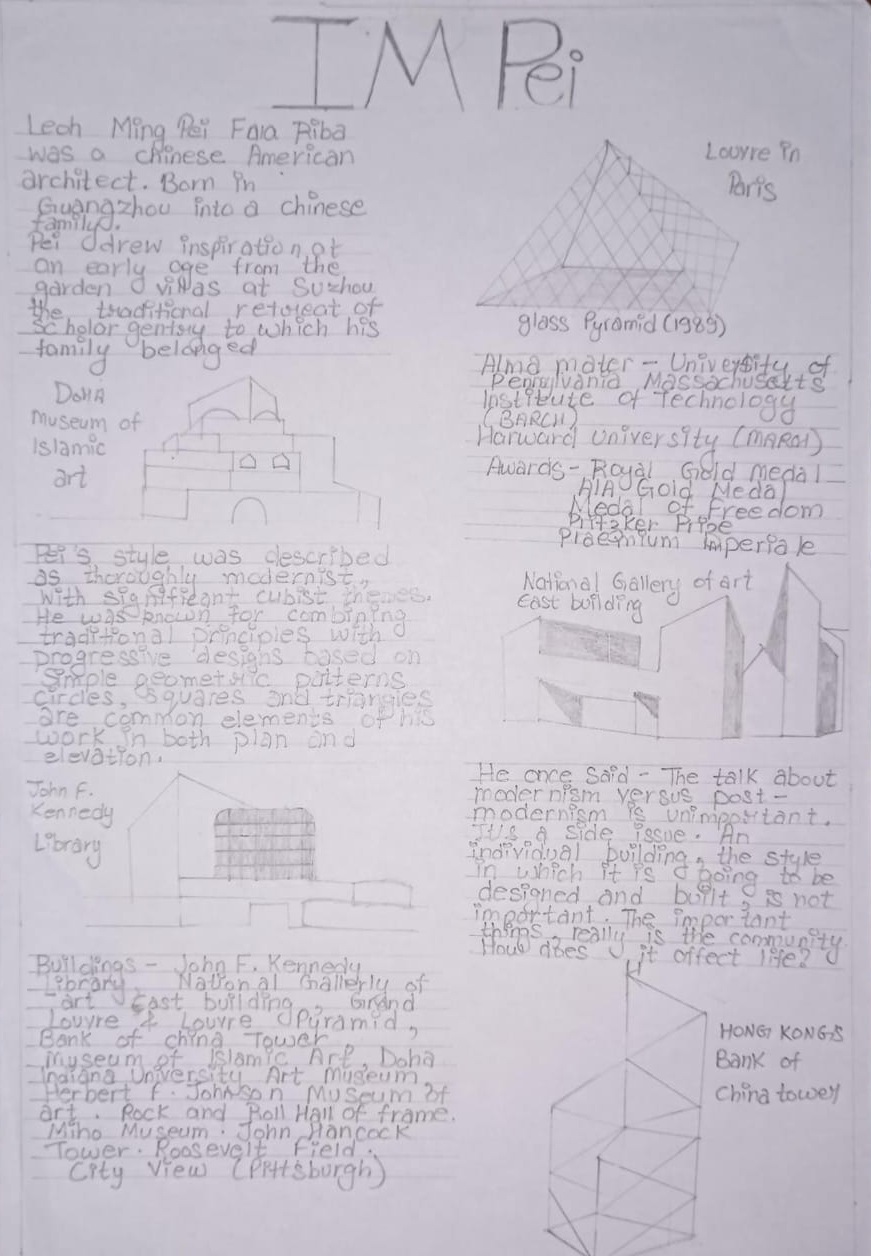 IM Pei
Leoh Ming Pei Faia Riba
was a chinese American
architect. Born in
Guangzhou into a chinese
family.
Pei drew inspiration at
an early age from the
garden villas at Suzhou
the traditional retreat of
scholar gentry to which his
family belonged
Louvre in
Paris
glass Pyramid (1989)
DOHA
Museum of
Islamic
art
Alma mater - University of
Pennylvania Massachusetts
Institute of Technology
(BARCH)
Harward University (MARCH)
Awards - Royal Gold Medal
AIA Gold Medal
Medal of Freedom
Pritzker Prize
Praemium Imperiale
Pei's style was described
as thoroughly modernist,
with significant cubist themes.
He was known for combining
traditional principles with
progressive designs based on
simple geometric patterns
circles, squares and triangles
are common elements of his
work in both plan and
elevation.
National Gallery of art
East building
John F.
Kennedy
Library
He once said - The talk about
modernism versus post-
modernism is unimportant.
It's a side issue. An
individual building, the style
in which it is going to be
designed and built, is not
important. The important
thims, really is the community.
How does it affect life?
Buildings - John F. Kennedy
Library, National Gallerly of
art East building, Grand
Louvre & Louvre Pyramid,
Bank of china Tower,
Museum of Islamic Art, Doha
Indiana University Art Museum
Herbert F. Johnson Museum of
art. Rock and Roll Hall of frame.
Miho Museum. John Hancock
Tower. Roosevelt Field.
City View (Pittsburgh)
HONG KONG'S
Bank of
China tower